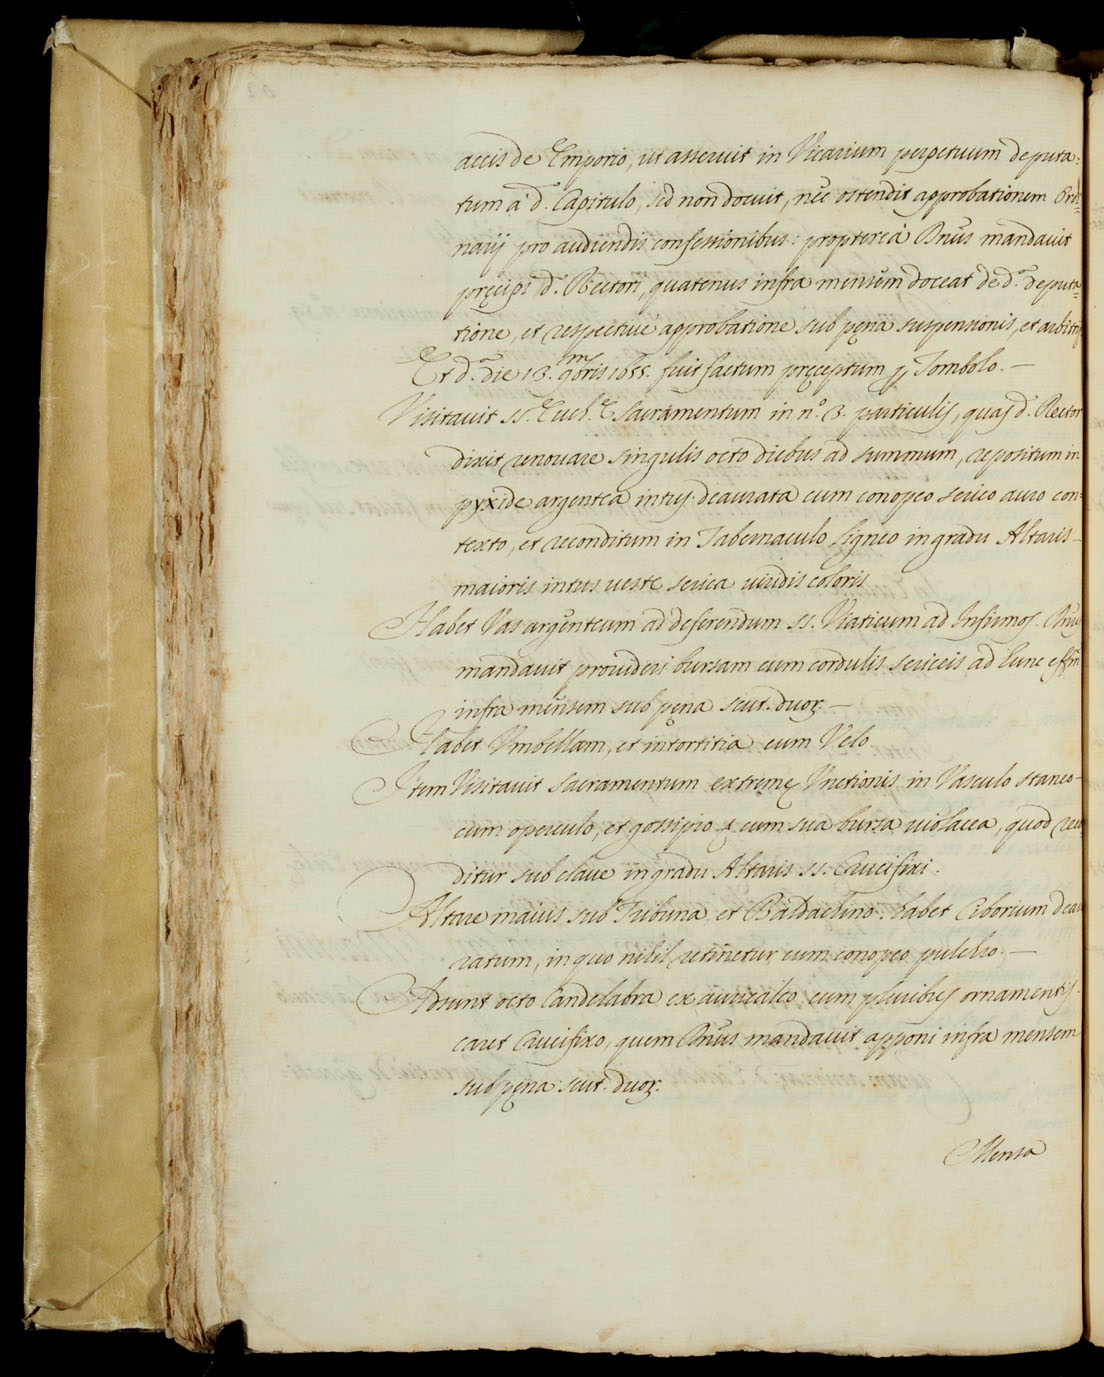 acis de Emporio, ut asseruit in Vicarium perpetuum deputa=
tum á d. Capitulo, sed non docuit, nec ostendit approbationem Ordi=
narij pro audiendis confessionibus: proptereà Dnus mandauit
pręcipi d. Rectori, quatenus infra mensem doceat de d. deputa=
tione, et respectiué approbatione sub pęna suspensionis, et arbitrij
Et d. die 13. 9mbris 1655. fuit factum pręceptum Tombolo.—
Visitauit SS. Euch. Sacramentum in n.º 3. particulis, quas d. Rector
dixit renouare singulis octo diebus ad summum, repositum in
pyxide argentea intus deaurata cum conopeo serico auro con=
texto, et reconditum in Tabernaculo ligneo in gradu Altaris—
maioris intus ueste serica uiridis coloris
Habet Vas argenteum ad deferendum SS. Viaticum ad Infirmos. Dnus
mandauit prouideri bursam cum cordulis sericeis ad hunc effm
infra mensem sub pęna scut. duor.—
Habet Vmbellam, et intortitia cum Velo
Item Visitauit Sacramentum extremę Vnctionis in Vasculo staneo—
cum operculo, et gossipio & cum sua bursa uiolacea, quod recon
ditur sub claue in gradu Altaris SS. Crucifixi.
Altare maius sub Tribuna, et Baldachino. habet Ciborium deau
ratum, in quo nihil retinetur cum conopeo pulchro.—
Adsunt octo Candelabra ex auricalco, cum pluribus ornamentis.
caret Crucifixo, quem Dnus mandauit apponi infra mensem
sub pęna scut. duor.
Mensa